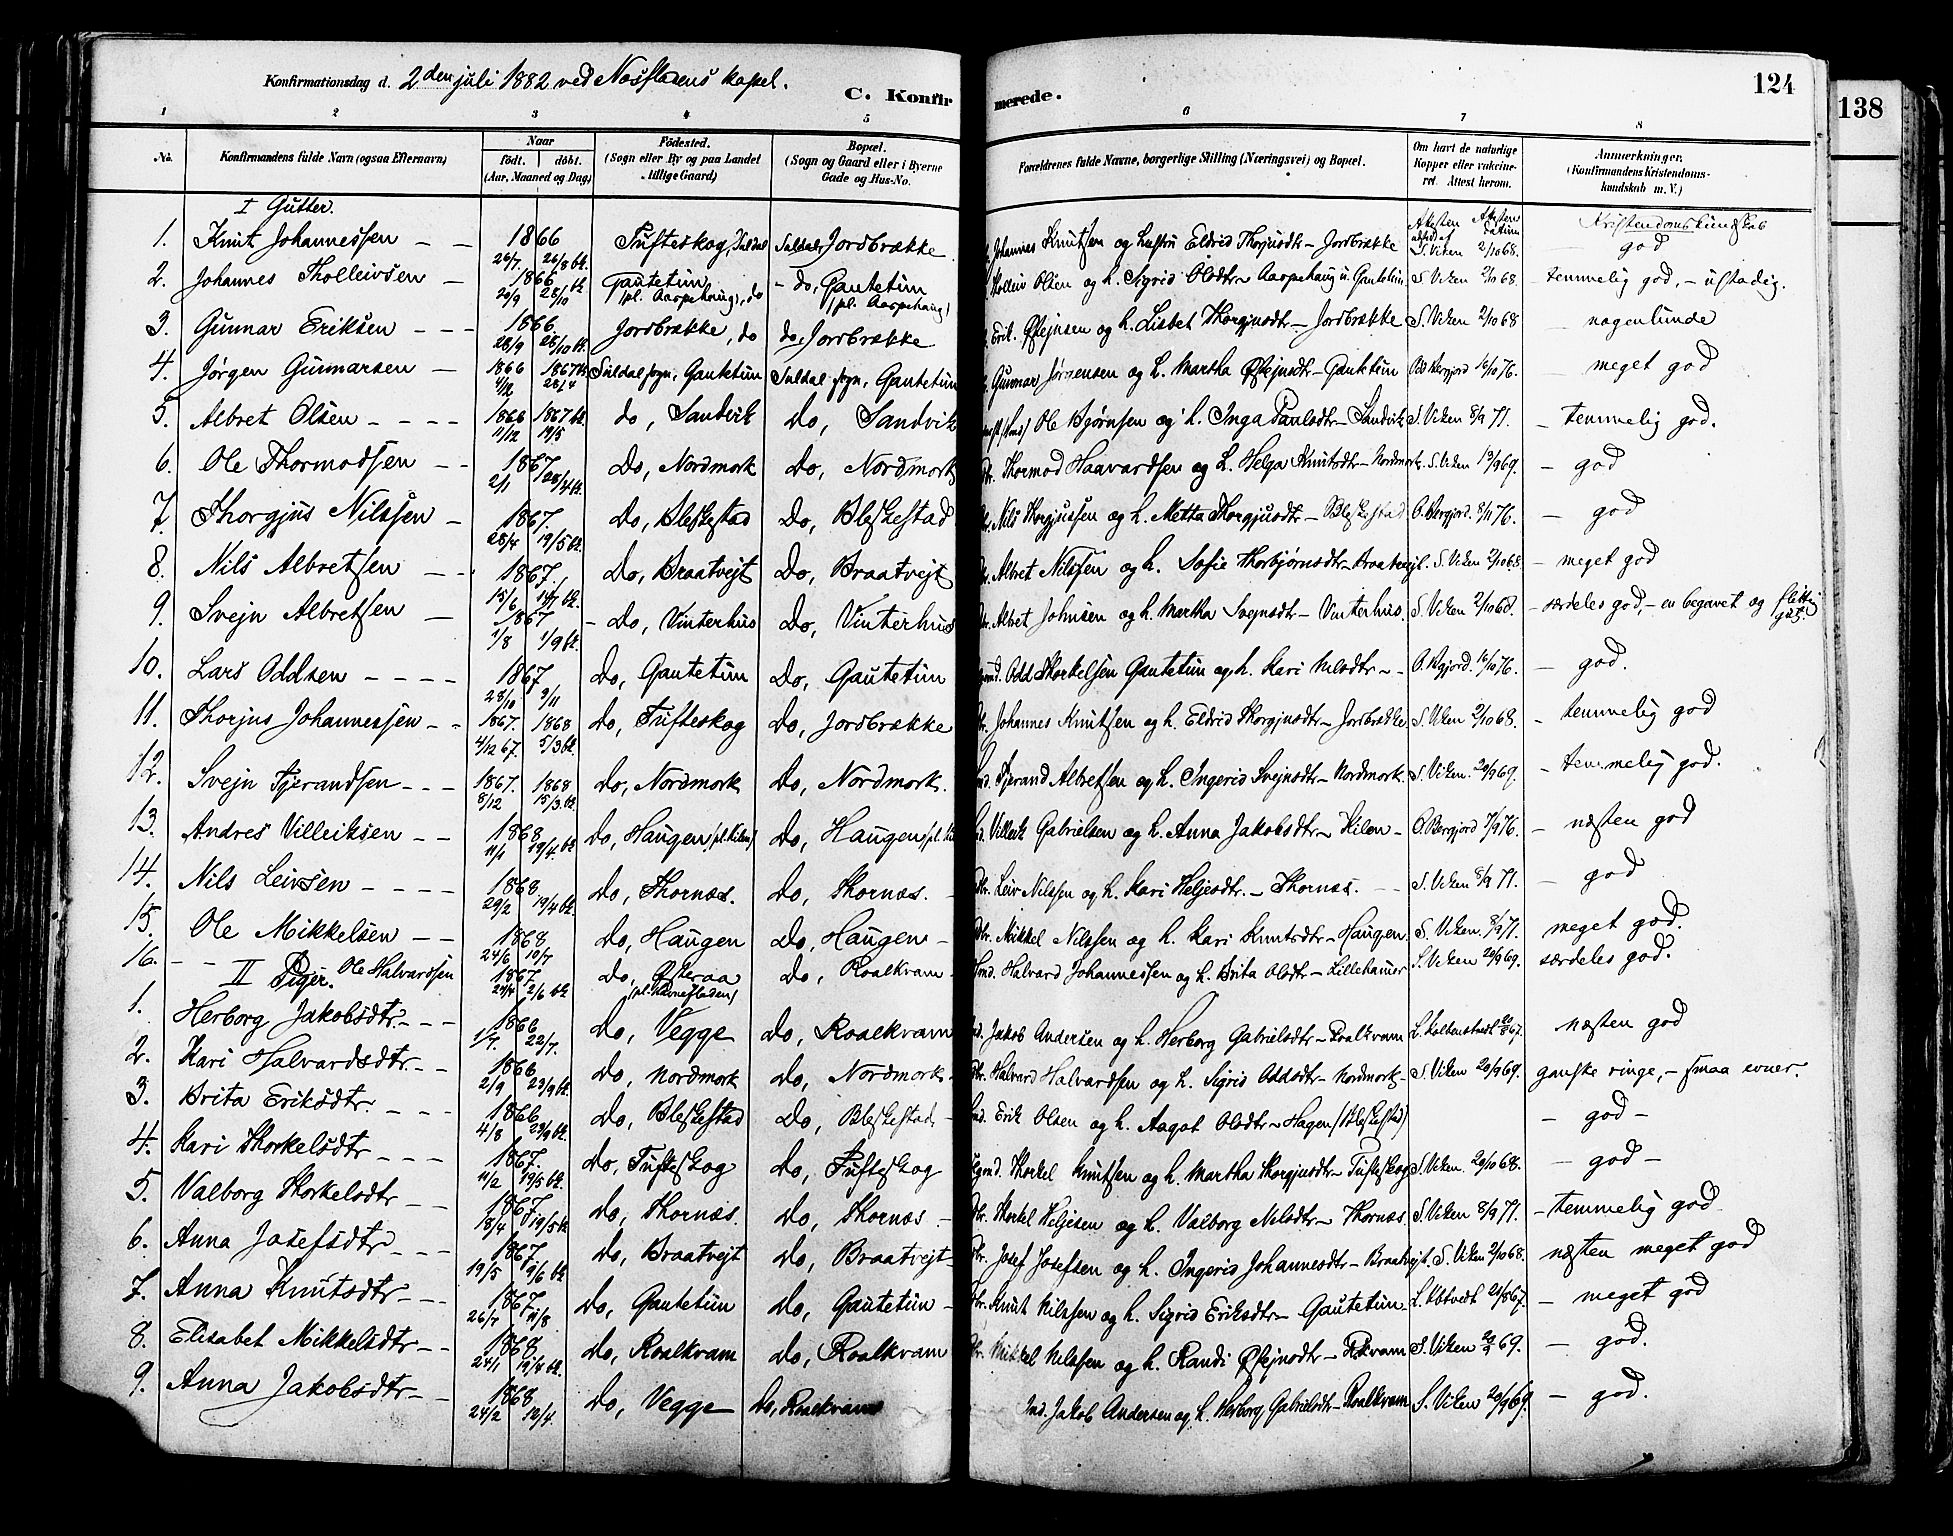 Konfirmationsdag d. 2den juli 1882 ved Næsfladens kapel.
C. Konfirmerede.
124
138
1 2 3 4 5 6 7 8
No. Konfirmandens fulde Navn (ogsaa Efternavn) Naar født. døbt. (Aar, Maaned og Dag) Fødested. (Sogn eller By og paa Landet tillige Gaard) Bopæl. (Sogn og Gaard eller i Byerne Gade og Hus-No. Forældrenes fulde Navne, borgerlige Stilling (Næringsvei) og Bopæl. Om havt de naturlige Kopper eller vakcineret. Attest herom. Anmerkninger. (Konfirmandens Kristendomskundskab m. V.)
I Gutter. Attesten Attesten datum Kristendomskundskab
1. Knut Johannessen 1866 26/7. 26/8 bk. Tufteskog, Suldal Suldal, Jordbrække Johannes Knutsen og hustru Eldrid Thorjusdtr - Jordbrække S. Viken 2/10 68. god
2. Johannes Tholleivsen 1866 20/9 28/10 bk Gautetun (pl. Aarpehaug), do do, Gautetun (pl. Aarpehaug) Tholleiv Olsen og h. Sigrid Olsdtr - Aarpehaug u. Gautetun S. Viken 2/10 68. temmelig god, - ustadig.
3. Gunnar Eriksen 1866 28/9 28/10 bk. Jordbrække, do do, Jordbrække Erik Østejnsen og h. Lisbet Thorgjusdtr - Jordbrække S. Viken 2/10 68 nogenlunde
4. Jørgen Gunnarsen 1866 4/12 1867 bk 28/4 Suldal sogn, Gautetun Suldal sogn, Gautetun Gunnar Jørgensen og h. Martha Østejnsdtr - Gautetun Bergjord 16/10 76. meget god
5. Albret Olsen 1866 11/12 1867 bk. 19/5 do, Sandvik do, Sandvik Ole Bjørnsen og h. Inga Paulsdtr - Sandvik S. Viken 8/9 71. temmelig god.
6. Ole Thormodsen 1867 2/1 28/4 bk. do, Nordmork do, Nordmork Thormod Haavardsen og h. Helga Knutsdtr - Nordmork. S. Viken 19/9 69. - god
7. Thorgjus Nilssen 1867. 28/4 19/5 bk. do, Bleskestad do, Bleskestad Nils Thorgjussen og h. Metta Thorgjusdtr - Bleskestad O. Bergjord. 8/11 76. - god
8. Nils Albretsen 1867. 15/6 14/7 bk. do, Braatvejt do, Braatvejt Albret Nilssen og h. Sofie Thorbjørnsdtr - Braatvejt. S. Viken 2/10 68. - meget god
9. Svejn Albretsen 1867 1/8 1/9 bk. do, Vinterhus do, Vinterhus Albret Johnsen og h. Martha Svejnsdtr - Vinterhus. S. Viken 2/10 68. - særdeles god, - en begavet og flittig gut.
10. Lars Oddsen 1867 28/10 9/11 do, Gautetun do, Gautetun Odd Thorkelsen Gautetun og h. Kari Nilsdtr - O. Bergjord. 16/10 76. - god.
11. Thorjus Johannessen 1867. 4/12 67. 1868 5/3 bk do, Tufteskog do, Jordbrække Johannes Knutsen og h. Eldrid Thorgjusdtr - Jordbrække. S. Viken 2/10 68. - temmelig god
12. Svejn Tjerandsen 1867. 5/12 1868 15/3. bk. do, Nordmork do, Nordmork. Tjerand Albretsen og h. Ingerid Svejnsdtr - Nordmork. S. Viken. 20/9 69. - temmelig god.
13. Andres Villeiksen 1868 11/1 19/4. bk do, Haugen (pl. Kilen) do, Haugen Villeik Gabrielsen og h. Anna Jakobsdtr - Kilen - O. Bergjord 7/9 76. - næsten god
14. Nils Leivsen 1868 29/2 19/4 bk. do, Thornæs. do, Thornæs. Leiv Nilssen og h. Kari Heljesdtr. - Thornæs. S. Viken 8/9 71. - god
15. Ole Mikkelsen 1868 24/6 10/7 do, Haugen do, Haugen - Mikkel Nilssen og h. Kari Knutsdtr - Haugen. S. Viken. 8/9 71. meget god.
16. Ole Halvardsen 1867. 2/6 bk do, Østeraa do, Roalkvam Halvard Johannessen og h. Brita Olsdtr - Lillehamer S. Viken 20/9 69. særdeles god.
II Piger.
1. Herborg Jakobsdtr. 1866 1/7. 22/7. do, Vegge do, Roalkvam Jakob Andersen og h. Herborg Gabrielsdtr - Roalkvam næsten god
2. Kari Halvardsdtr. 1866 2/9 23/9 bk. do, Nordmork do, Nordmork Halvard Halvardsen og h. Sigrid Oddsdtr - Nordmork - S. Viken 20/9 69. ganske ringe, - smaa evner.
3. Brita Eriksdtr. 1866 4/8 23/9 bk. do, Bleskestad do, Bleskestad. Erik Olsen og h. Aagot Olsdtr - Hagen (Bleskestad) - god -
4. Kari Thorkelsdtr 1867. 11/2 19/5 bk. do, Tufteskog do, Tufteskog Thorkel Knutsen og h. Martha Thorgjusdtr - Tufteskog S. Viken. 20/10 68. - god -
5. Valborg Thorkelsdtr 1867 18/4 19/5 bk do, Thornæs. do, Thornæs - Thorkel Heljesen og h. Valborg Nilsdtr - Thornæs S. Viken 8/9 71. - temmelig god
6. Anna Josefsdtr 1867 19/5 9/6 bk do, Braatvejt do, Braatvejt Josef Josefsen og h. Ingerid Johannesdtr - Braatvejt. S. Viken 2/10 68. næsten meget god
7. Anna Knutsdtr 1867 26/7 11/8 do, Gautetun do, Gautetun - Knut Nilssen og h. Sigrid Eriksdtr - Gautetun 21/8 67. - meget god
8. Elisabet Mikkelsdtr 1868 24/1 19/4 bk. do, Roalkvam do, Roalkvam Mikkel Nilssen og h. Randi Østejnsdtr - S. Viken 69. - god.
9. Anna Jakobsdtr 1868 24/2 12/4. do, Vegge do, Roalkvam Ind. Jakob Andersen og h. Herborg Gabrielsdtr - Roalkvam S. Viken 20/9 69. - god.